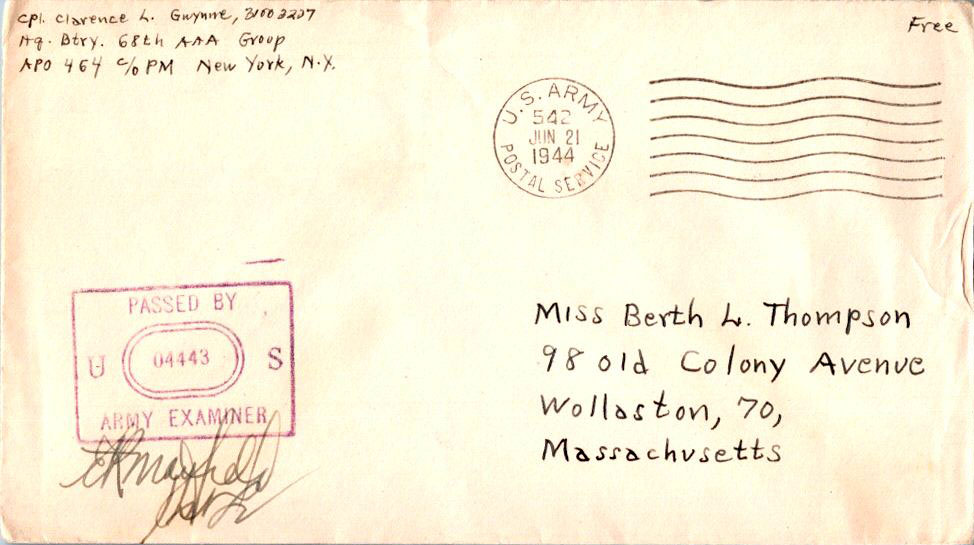 Cpl. Clarence L. Gwynne, 31003227
Hq. Btry. 68th AAA Group
APO 464 c/o PM New York, N.Y.
Free
U.S. ARMY
542
JUN 21
1944
POSTAL SERVICE
PASSED BY
U 04443 S
ARMY EXAMINER
Miss Berth L. Thompson
98 old Colony Avenue
Wollaston, 70,
Massachusetts